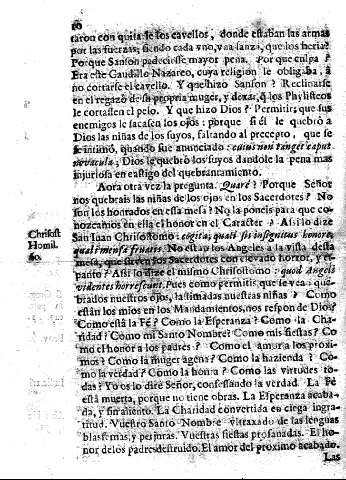 10
taron con quitarle los cavellos, donde estaban las armas
por las fuerzas; siendo cada vno, vna lanza, que los heria?
Porque Sanson padeciesse mayor pena. Por que culpa?
Era este Caudillo Nazareo, cuya religion le obligaba, à
no cortarse el cavello. Y que hizo Sanson? Reclinarse
en el regazo de su propria muger, y dexar, q los Philisteos
le cortassen el pelo. Y que hizo Dios? Permitir, que sus
enemigos le sacassen los ojos: porque si èl le quebrò à
Dios las niñas de los suyos, faltando al precepto, que se
le intimò, quando fue anunciado: cuius non tanget caput
novacula; Dios le quebrò los suyos dandole la pena mas
injuriosa en castigo del quebrantamiento.
Aora otra vez la pregunta. Quarè? Porque Señor
nos quebrais las niñas de los ojos en los Sacerdotes? No
son los honrados en esta mesa? No la poneis para que co-
nozcamos en ella el honor en el Caracter? Assi lo dize
San Iuan Chrisostomo: cogita, quali sis insignitus honore,
quali mensa fruaris. No estàn los Angeles a la vista desta
mesa, que sirven los Sacerdotes con elevado horror, y es-
panto? Assi lo dize el mismo Chrisostomo: quod Angeli
videntes horrescunt. Pues como permitis, que se vea: que-
brados nuestros ojos, lastimadas nuestras niñas? Como
estàn los mios en los Mandamientos, nos respon de Dios?
Como està la Fè? Como la Esperanza? Como la Cha-
ridad? Como mi Santo Nombre? Como mis fiestas? Co
mo el honor a los padres? Como el amor a los proxi-
mos? Como la muger agena? Como la hazienda? Co
mo la verdad? Como la honra? Como las virtudes to-
das? Yo os lo dirè Señor, confessando la verdad. La Fè
està muerta, porque no tiene obras. La Esperanza acaba-
da, y sin aliento. La Charidad convertida en ciega ingra-
titud. Vuestro Santo Nombre vltraxado de las lenguas
blasfemas, y perjuras. Vuestras fiestas profanadas. El ho-
nor de los padres destruido. El amor del proximo acabado.
Las
Chrisost
Homil.
60.